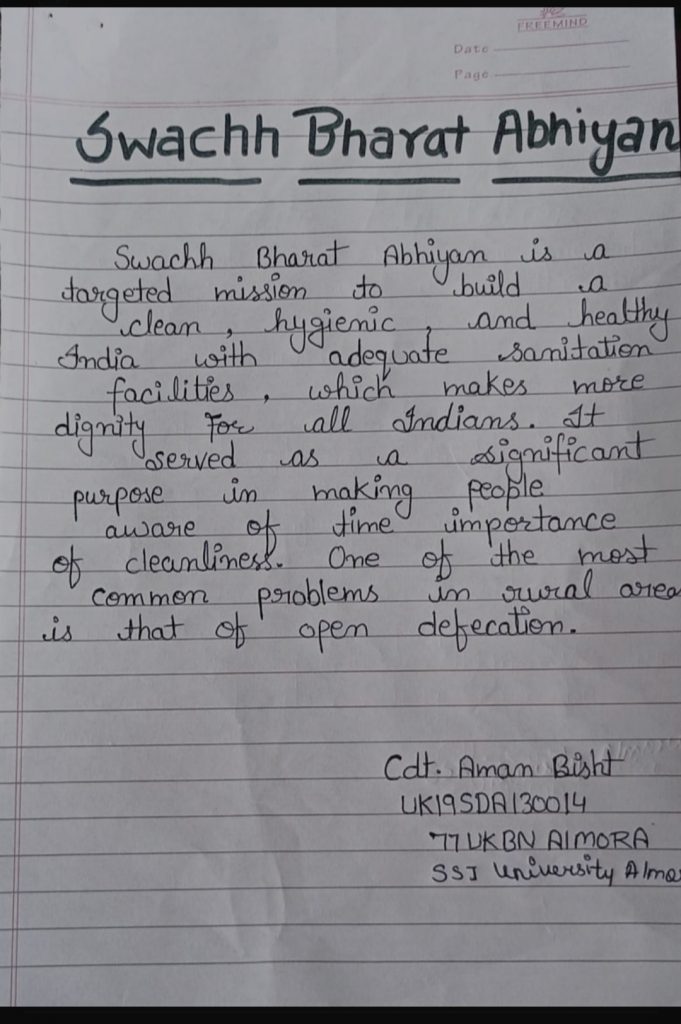 FREEMIND
Date
Page
Swachh Bharat Abhiyan
Swachh Bharat Abhiyan is a
targeted mission to build a
clean, hygienic, and healthy
India with adequate sanitation
facilities, which makes more
dignity for all Indians. It
served as a significant
purpose in making people
aware of time importance
of cleanliness. One of the most
common problems in rural area
is that of open defecation.
Cdt. Aman Bisht
UK19SDA130014
77 UKBN AlMORA
SSJ University Almo